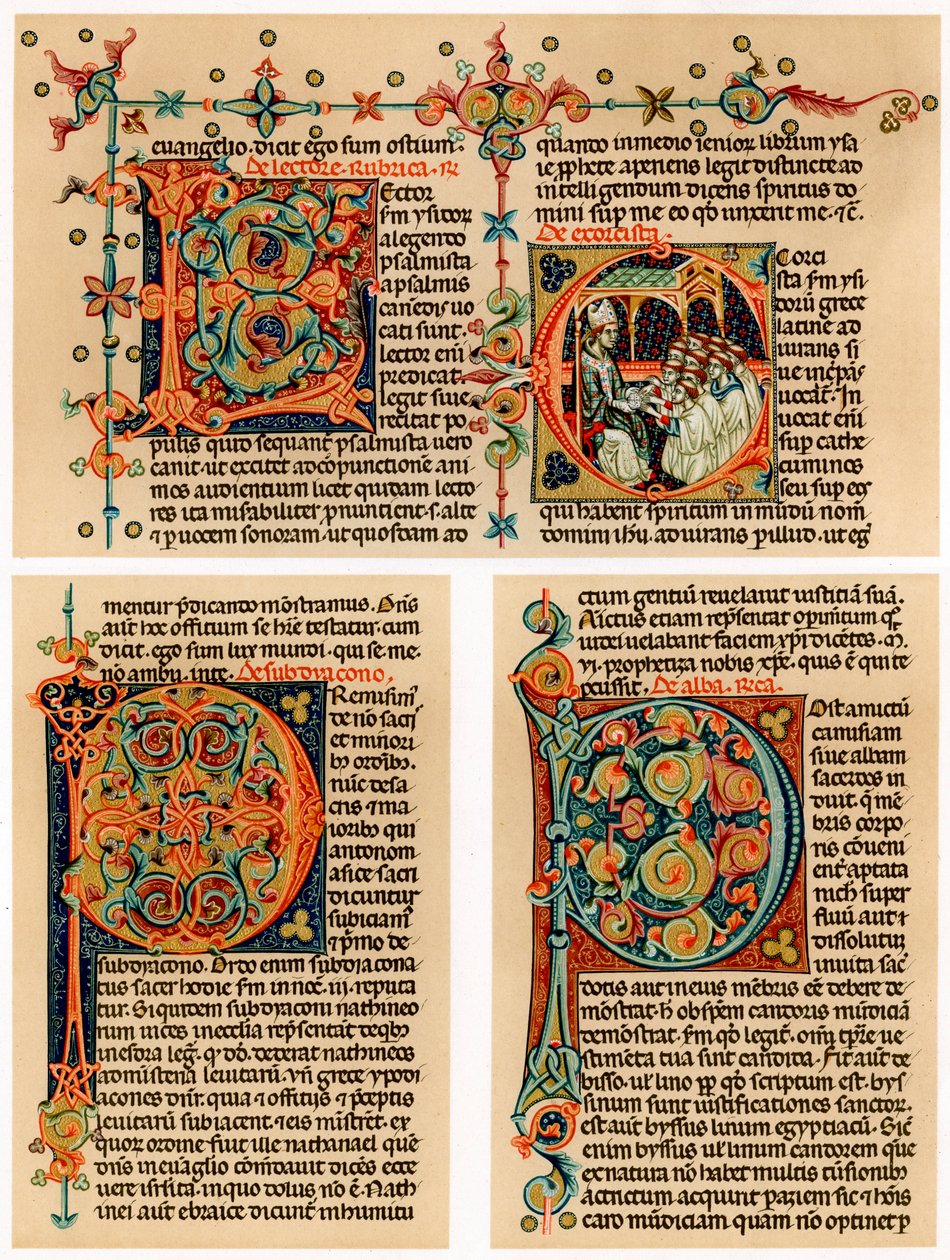 euangelio. dicit ego sum ostium.
De lectore. Rubrica. R
Ector
s̄m ysidor
a legendo
psalmista
a psalmis
canēdis uo
cati sunt.
lector eni
predicat.
legit siue
recitat po
pulis quid sequant̄ psalmista uero
canit ut excitet ad cōpunctionē ani
mos audientium licet quidam lecto
res ita misabiliter p̄nuntient. s. alte
⁊ p uocem sonoram. ut quosdam ad
quando in medio senior librum ysa
ie pphete aperiens legit distincte ad
intelligendum dicens spiritus do
mini sup me eo qd unxerit me. ⁊c̄.
De exorcista.
Corci
sta s̄m ysi
dorū grece
latine ad
iurans si
ue incpās
uocat̄. In
uocat eni
sup cathe
cuminos
seu sup eos
qui habent spiritum inmūdū nom̄
domini ihū. adiurans p illud. ut eg
mentur p̄dicando mōstramus. Dn̄s
aut̄ hoc officium se hr̄e testatur. cum
dicit. ego sum lux mundi. qui se me.
nō ambu. in te. De subdyacono,
Remissim̄
de nō sacs̄
et minori
b ordib.
nūc de sa
cris ⁊ ma
iorib qui
antonom
asice sacri
dicuntur
subiciam̄
⁊ p̄mo de
subdyicono. Ordo enim subdiacona
tus sacer hodie s̄m innoc̄. iii. reputa
tur. Siquidem subdyaconi nathineo
rum uices in ecclīa rep̄sentāt de qb
in esdra leḡ. q dd. dederat nathineos
ad mīsteria leuitarū. vn̄ grece ypodi
acones dn̄r. quia ⁊ officijs ⁊ p̄ceptis
leuitarū subiacent. ⁊ eis mīstrēt. ex
quor ordine fuit ille nathanael quē
dn̄s in euāglio cōmdauit dicēs ecce
uere isrl̄ita. in quo dolus nō ē. Nath
inei aut̄ ebraice dicunt̄ in humilitu
ctum gentiū reuelauit iusticiā suā.
Amictus etiam rep̄sentat opim̄tum q
iudei uelabant faciem xp̄i dicētes. M.
vi. prophetiza nobis xp̄e. quis ē qui te
pcussit, De alba. R̄ca.
Ost amictū
camisiam
siue albam
sacerdos in
duit. q̄ mē
bris corpo
ris cōueni
ent̄ aptata
nich̄ super
fluū aut ⁊
dissolutū
in uita sac̄
dotis aut in eius mēbris eē debere de
mōstrat. h ob spēm candoris mūdiciā
demōstrat. s̄m qd legit̄. om̄i tp̄re ue
stim̄eta tua sint candida. Fit aut̄ de
bisso. ul̄ lino pp qd scriptum est. bys
sinum sunt iustificationes sanctor.
est aut̄ byssus linum egyptiacū. Sic̄
enim byssus ul̄ linum candorem quē
ex natura nō habet multis tūsionib
actritum acquirit p aziem sic ⁊ hōis
caro mūdiciam quam nō optinet p